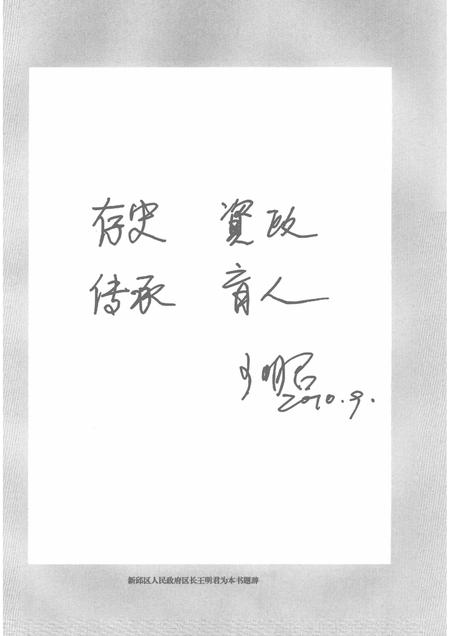 存史 資政
传承 育人
王明君
2010.9.
新邱区人民政府区长王明君为本书题辞